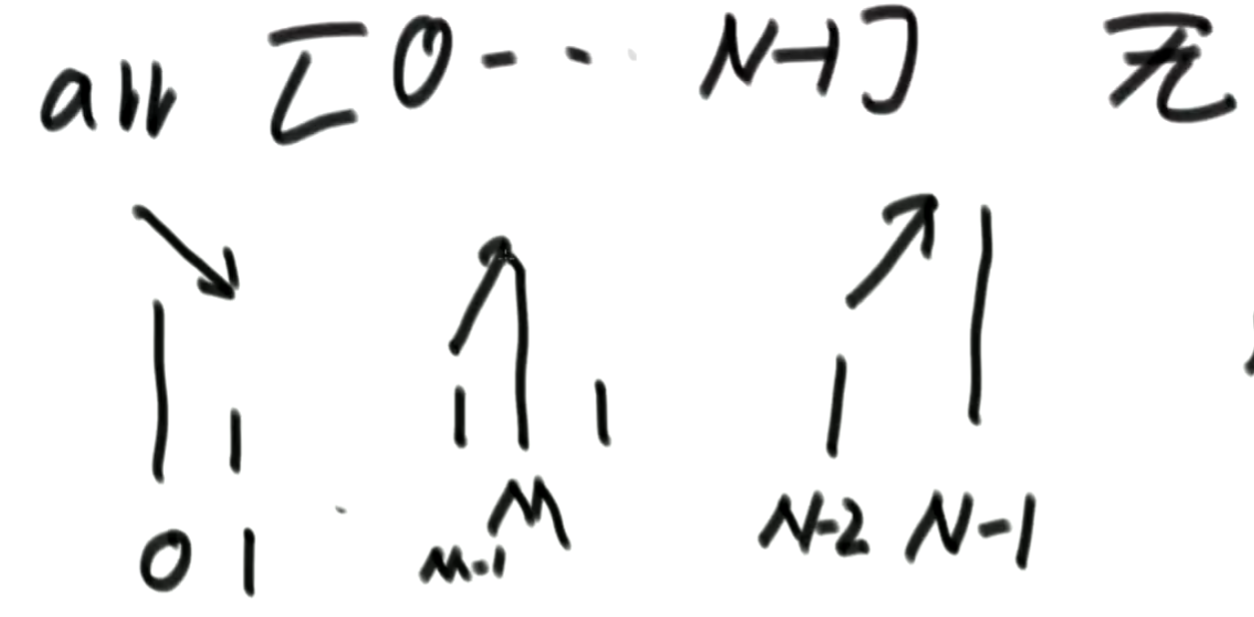 arr [0 - - · N-1] 无
0 1 M-1 M N-2 N-1